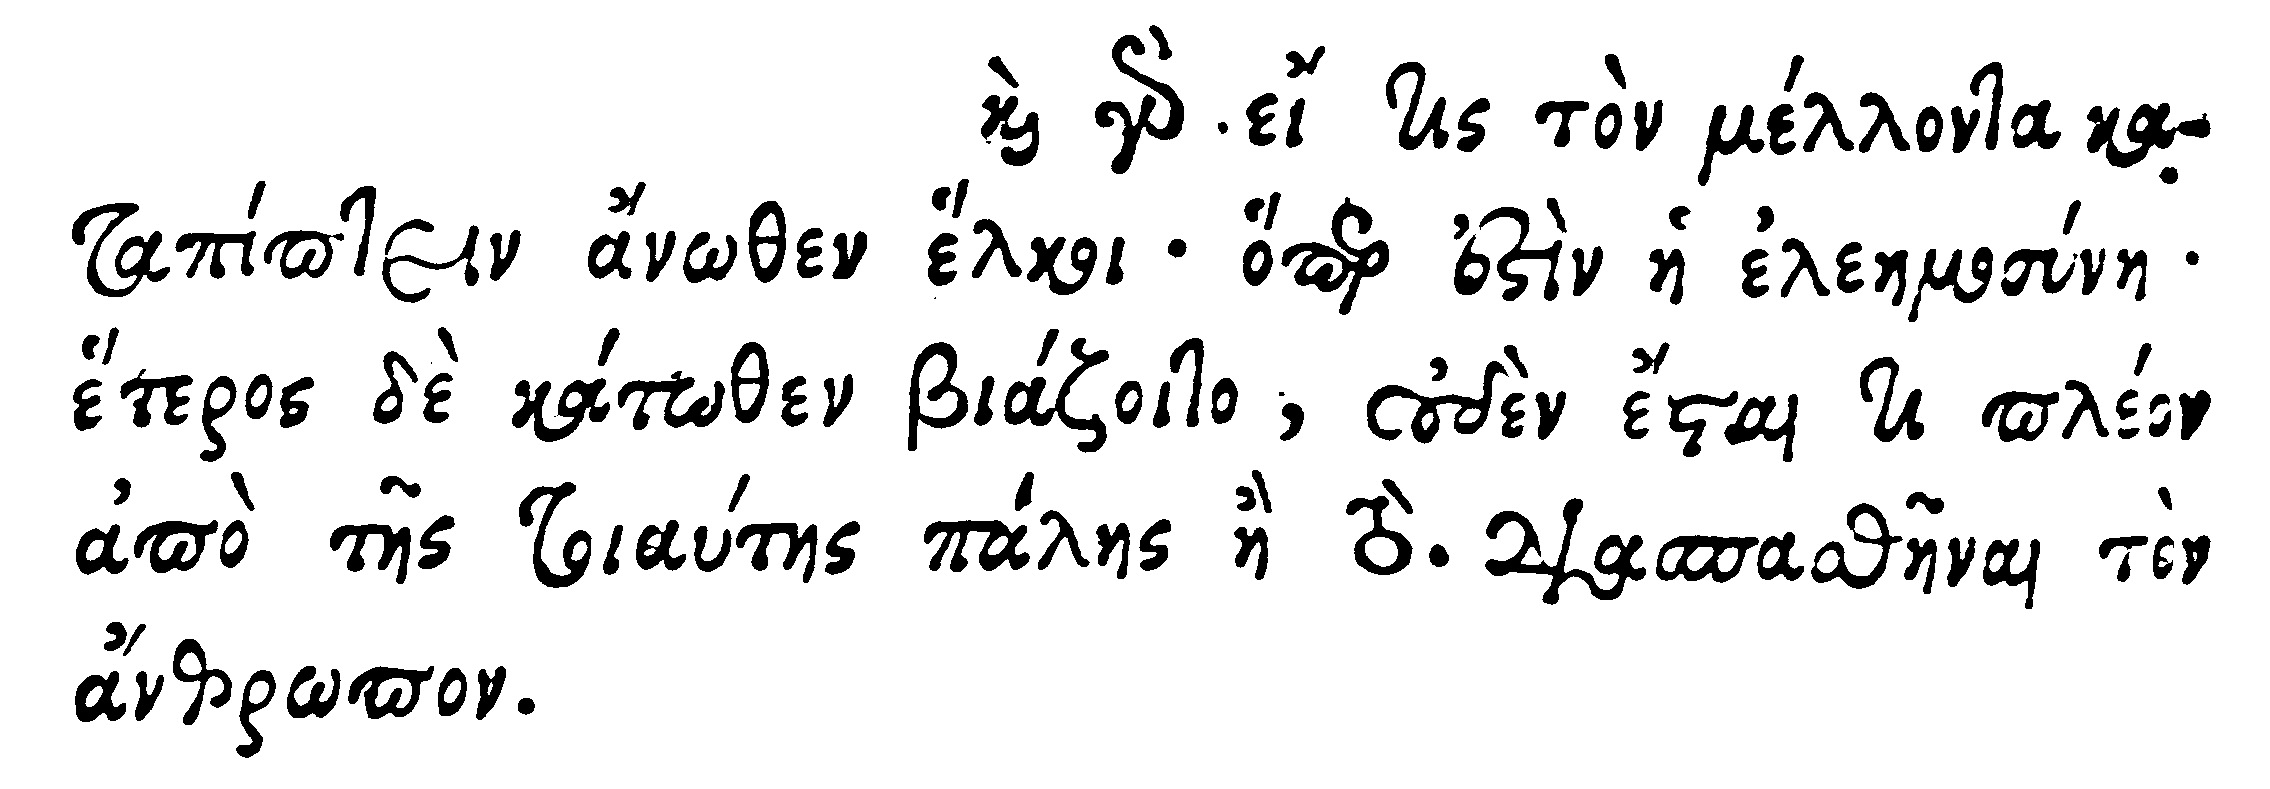 καὶ γὰρ · εἴ τις τὸν μέλλοντα κα-
ταπίπτειν ἄνωθεν ἕλκει · ὅπερ ἐστὶν ἡ ἐλεημοσύνη ·
ἕτερος δὲ κάτωθεν βιάζοιτο, οὐδὲν ἔσται τι πλέον
ἀπὸ τῆς τοιαύτης πάλης ἢ τὸ · διασπασθῆναι τὸν
ἄνθρωπον.